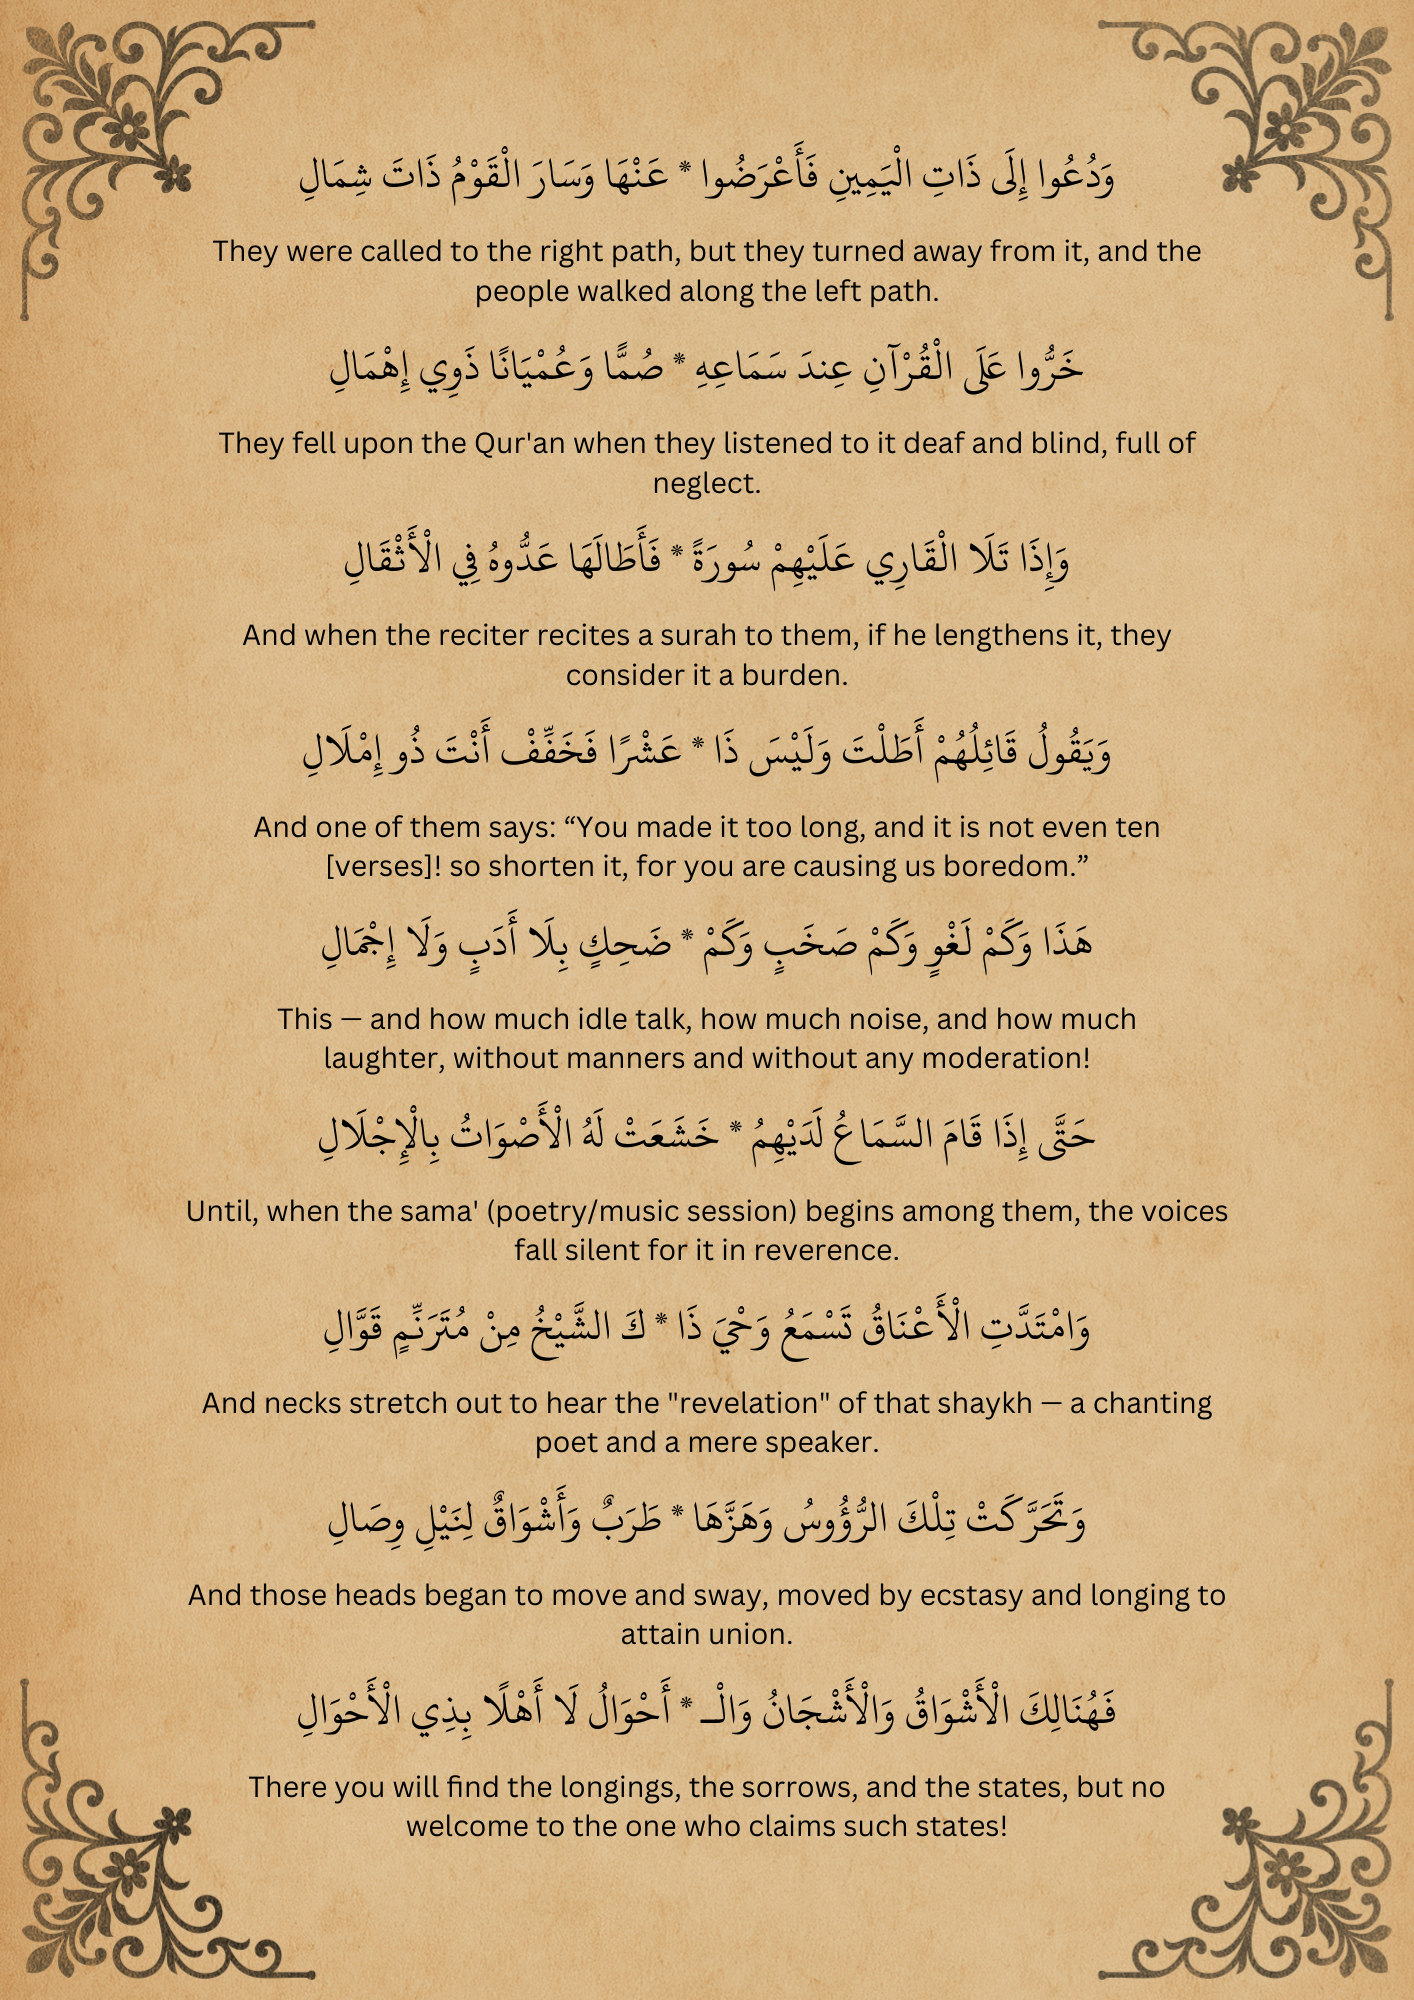 وَدُعُوا إِلَى ذَاتِ الْيَمِينِ فَأَعْرَضُوا * عَنْهَا وَسَارَ الْقَوْمُ ذَاتَ شِمَالِ
They were called to the right path, but they turned away from it, and the
people walked along the left path.
خَرُّوا عَلَى الْقُرْآنِ عِندَ سَمَاعِهِ * صُمًّا وَعُمْيَانًا ذَوِي إِهْمَالِ
They fell upon the Qur'an when they listened to it deaf and blind, full of
neglect.
وَإِذَا تَلَا الْقَارِي عَلَيْهِمْ سُورَةً * فَأَطَالَهَا عَدُّوهُ فِي الْأَثْقَالِ
And when the reciter recites a surah to them, if he lengthens it, they
consider it a burden.
وَيَقُولُ قَائِلُهُمْ أَطَلْتَ وَلَيْسَ ذَا * عَشْرًا فَخَفِّفْ أَنْتَ ذُو إِمْلَالِ
And one of them says: “You made it too long, and it is not even ten
[verses]! so shorten it, for you are causing us boredom.”
هَذَا وَكَمْ لَغْوٍ وَكَمْ صَخَبٍ وَكَمْ * ضَحِكٍ بِلَا أَدَبٍ وَلَا إِجْمَالِ
This — and how much idle talk, how much noise, and how much
laughter, without manners and without any moderation!
حَتَّى إِذَا قَامَ السَّمَاعُ لَدَيْهِمُ * خَشَعَتْ لَهُ الْأَصْوَاتُ بِالْإِجْلَالِ
Until, when the sama' (poetry/music session) begins among them, the voices
fall silent for it in reverence.
وَامْتَدَّتِ الْأَعْنَاقُ تَسْمَعُ وَحْيَ ذَا * كَ الشَّيْخُ مِنْ مُتَرَنِّمٍ قَوَّالِ
And necks stretch out to hear the "revelation" of that shaykh — a chanting
poet and a mere speaker.
وَتَحَرَّكَتْ تِلْكَ الرُّؤُوسُ وَهَزَّهَا * طَرَبٌ وَأَشْوَاقٌ لِنَيْلِ وِصَالِ
And those heads began to move and sway, moved by ecstasy and longing to
attain union.
فَهُنَالِكَ الْأَشْوَاقُ وَالْأَشْجَانُ وَالْـ * أَحْوَالُ لَا أَهْلًا بِذِي الْأَحْوَالِ
There you will find the longings, the sorrows, and the states, but no
welcome to the one who claims such states!